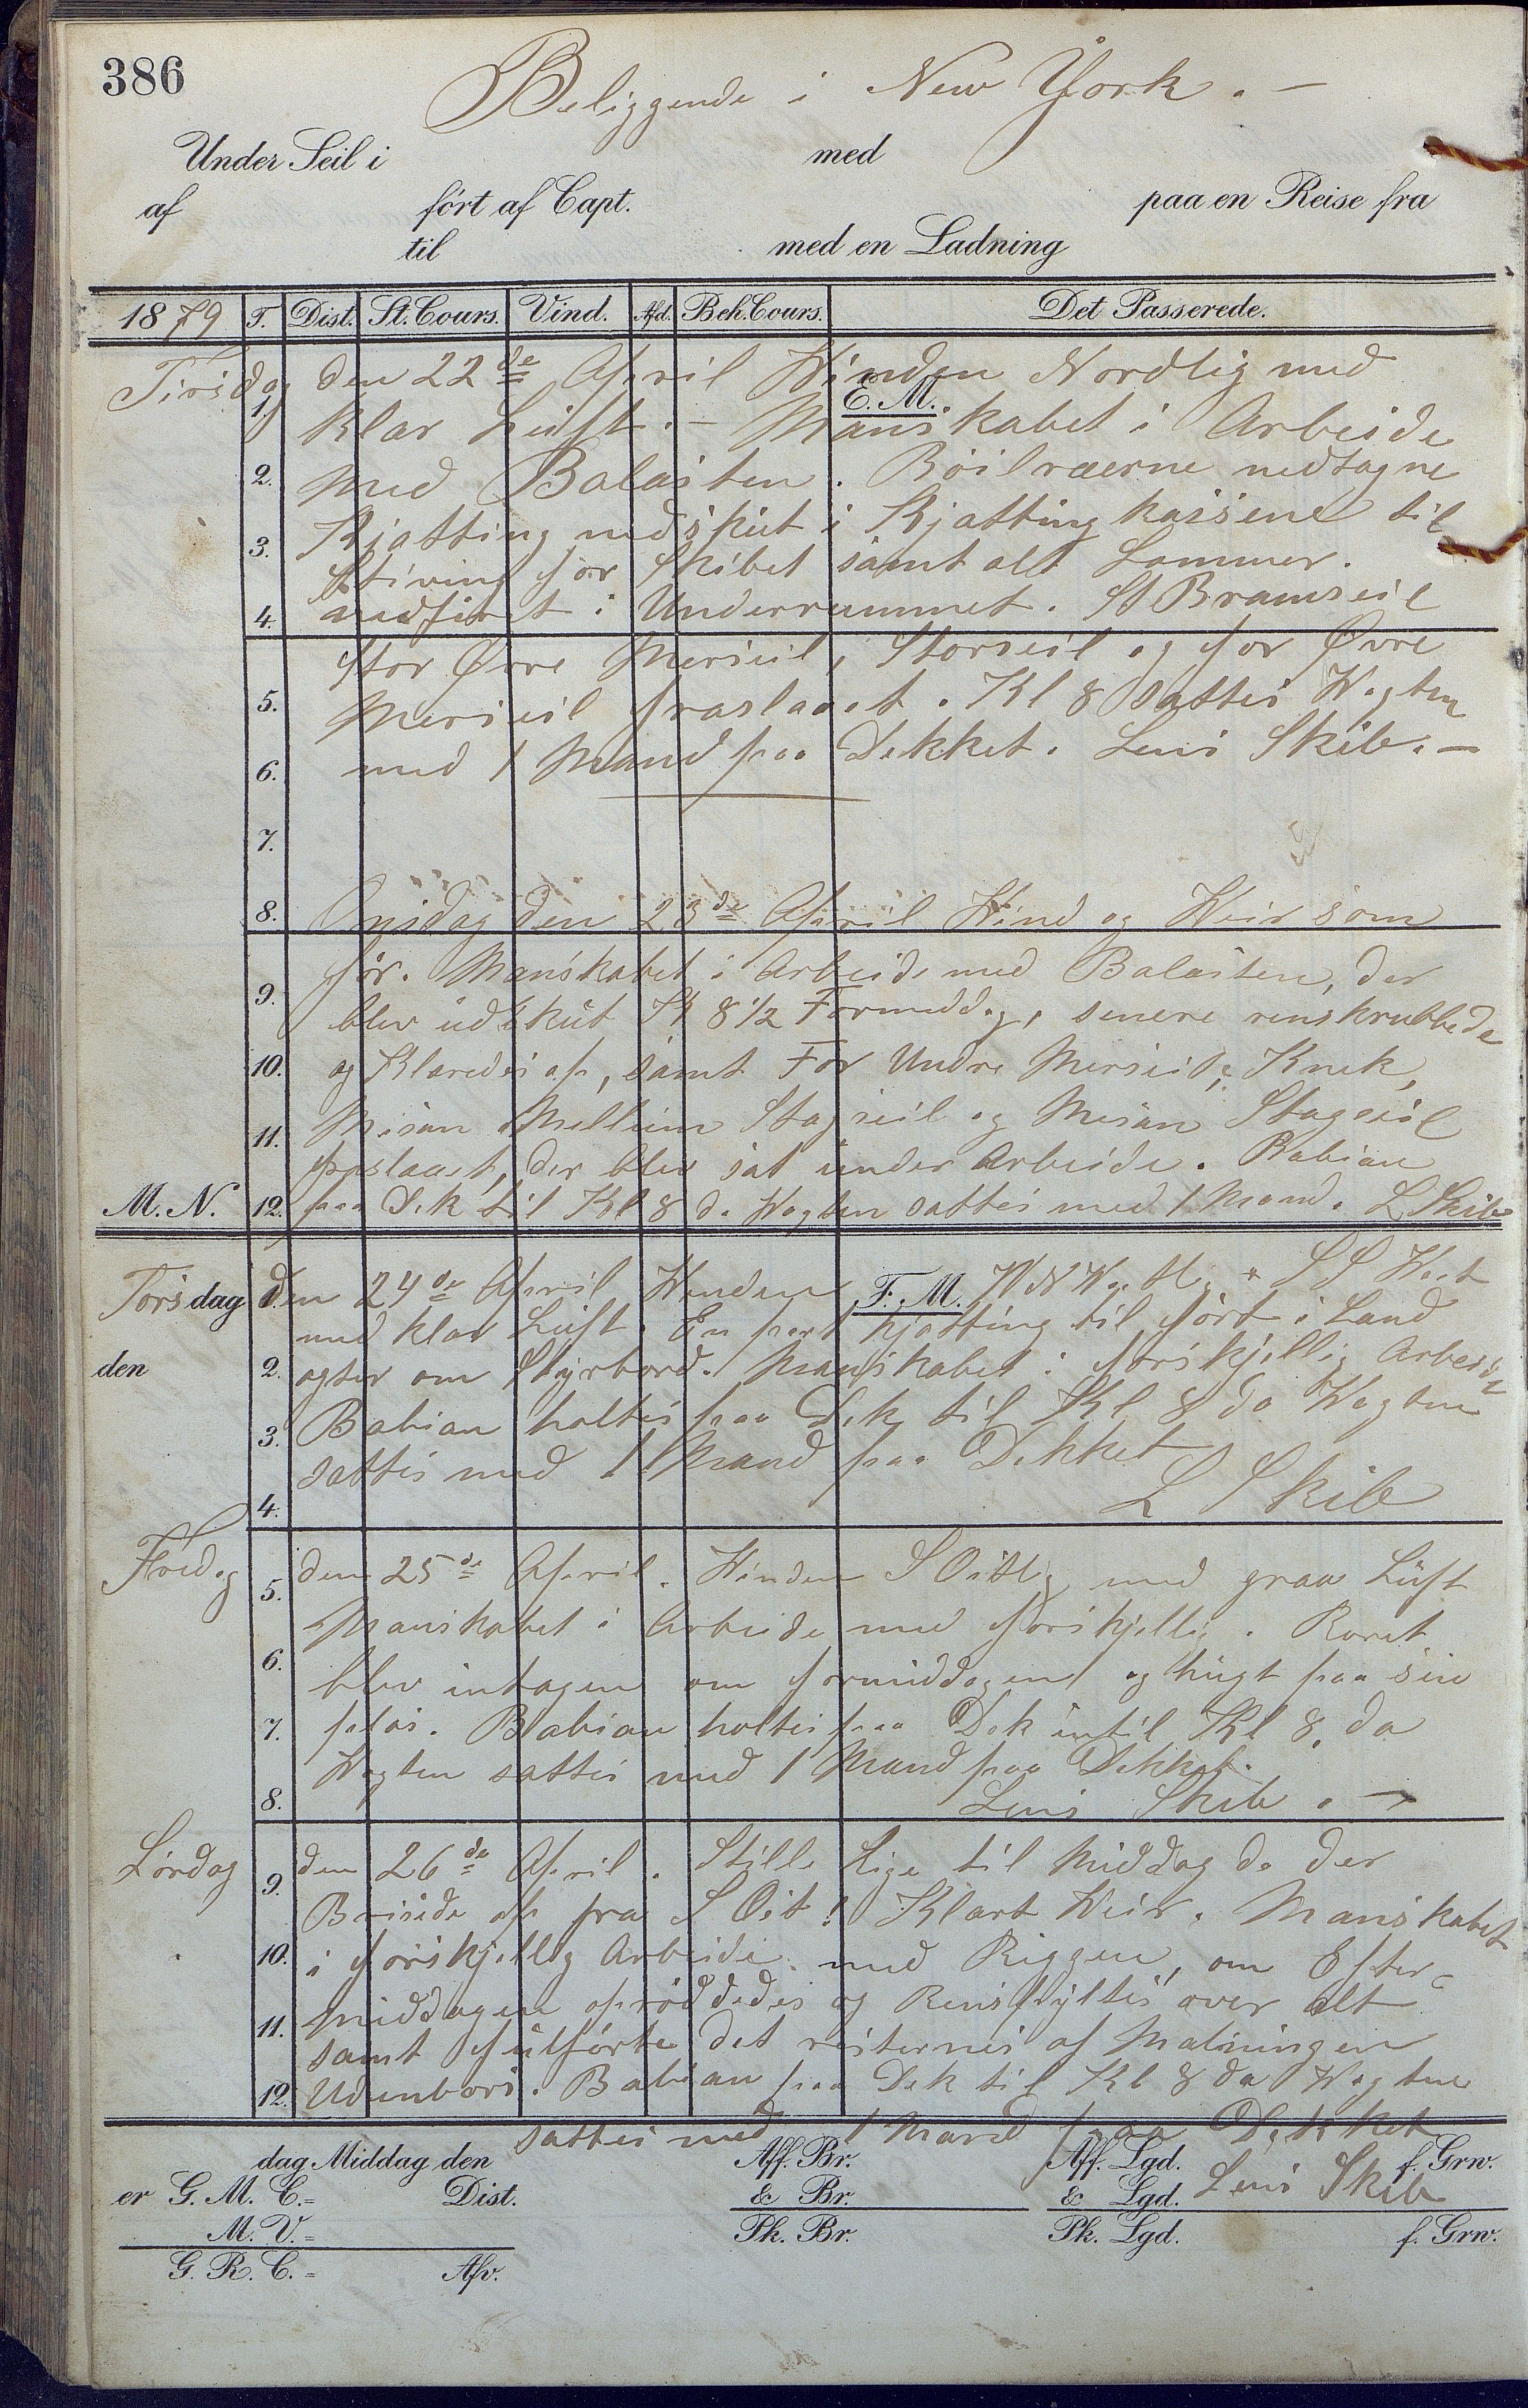 386
Beliggende i New York. —
Under Seil i med
af ført af Capt. paa en Reise fra
til med en Ladning
1879 T. Dist. St. Cours. Vind. Afd. Beh. Cours. Det Passerede.
Tirsdag den 22de April Winden Nordlig med
E. M.
1. klar Luft. — Manskabet i Arbeide
2. med Balasten. Röilræerne nedtagne
3. Kjætting nedskut i Kjættingkassene til
Stiving for Skibet samt alt Lommer.
4. nedfirt i Underrummet. St Bramseil
Stor Øvre Merseil, Storseil og for Øvre
5. Merseil fraslaaet. Kl 8 sattes Wagten
6. med 1 Mand paa Dekket. Lens Skib. —
7.
8. Onsdag den 23de April Wind og Weir som
9. för. Manskabet i Arbeide med Balasten, der
blev udskut Kl 8 1/2 Formiddag, senere renskrubbede
10. og Klaredes op, samt For Undre Merseil, Knek,
11. Mesan Mellem Stagseil og Mesan Stagseil
fraslaaet, der blev sat under Arbeide. Babian
M. N. 12. paa Dek til Kl 8 da Wagten sattes med 1 Mand. L Skib
Torsdag den 24de April Winden F. M. WNWestlig SS West
1. med klar Luft. En part kjætting til fört i Land
den 2. agter om Styrbord. Manskabet i forskjellig Arbeide
3. Babian holtes paa Dek til Kl 8 da Wagten
sattes med 1 Mand paa Dekket
4. L Skib
Fredag 5. den 25de April. Winden SOstlig med graa Luft
Manskabet i Arbeide med forskjellig. Roret
6. blev intagen om formiddagen og hugt paa sin
7. plas. Babian holtes paa Dek intil Kl 8, da
Wagten sattes med 1 Mand paa Dekket.
8. Lens Skib. —
Lördag 9. den 26de April. Stille lige til Middag da der
Brisede op fra S Ost! Klart Weir. Manskabet
10. i forskjellig Arbeide med Riggen, om Efter-
11. middagen oprøddedes og Renspyltes over alt
samt fulförte det resternes af Malningen
12. Udenbors. Babian paa Dek til Kl 8 da Wagten
sattes med 1 Mand paa Dekket
dag Middag den Aff. Br. Aff. Lgd. f. Grw.
Lens Skib
er G. M. C.= Dist. & Br. & Lgd.
M. V.= Pk. Br. Pk. Lgd. f. Grw.
G. R. C.= Afv.